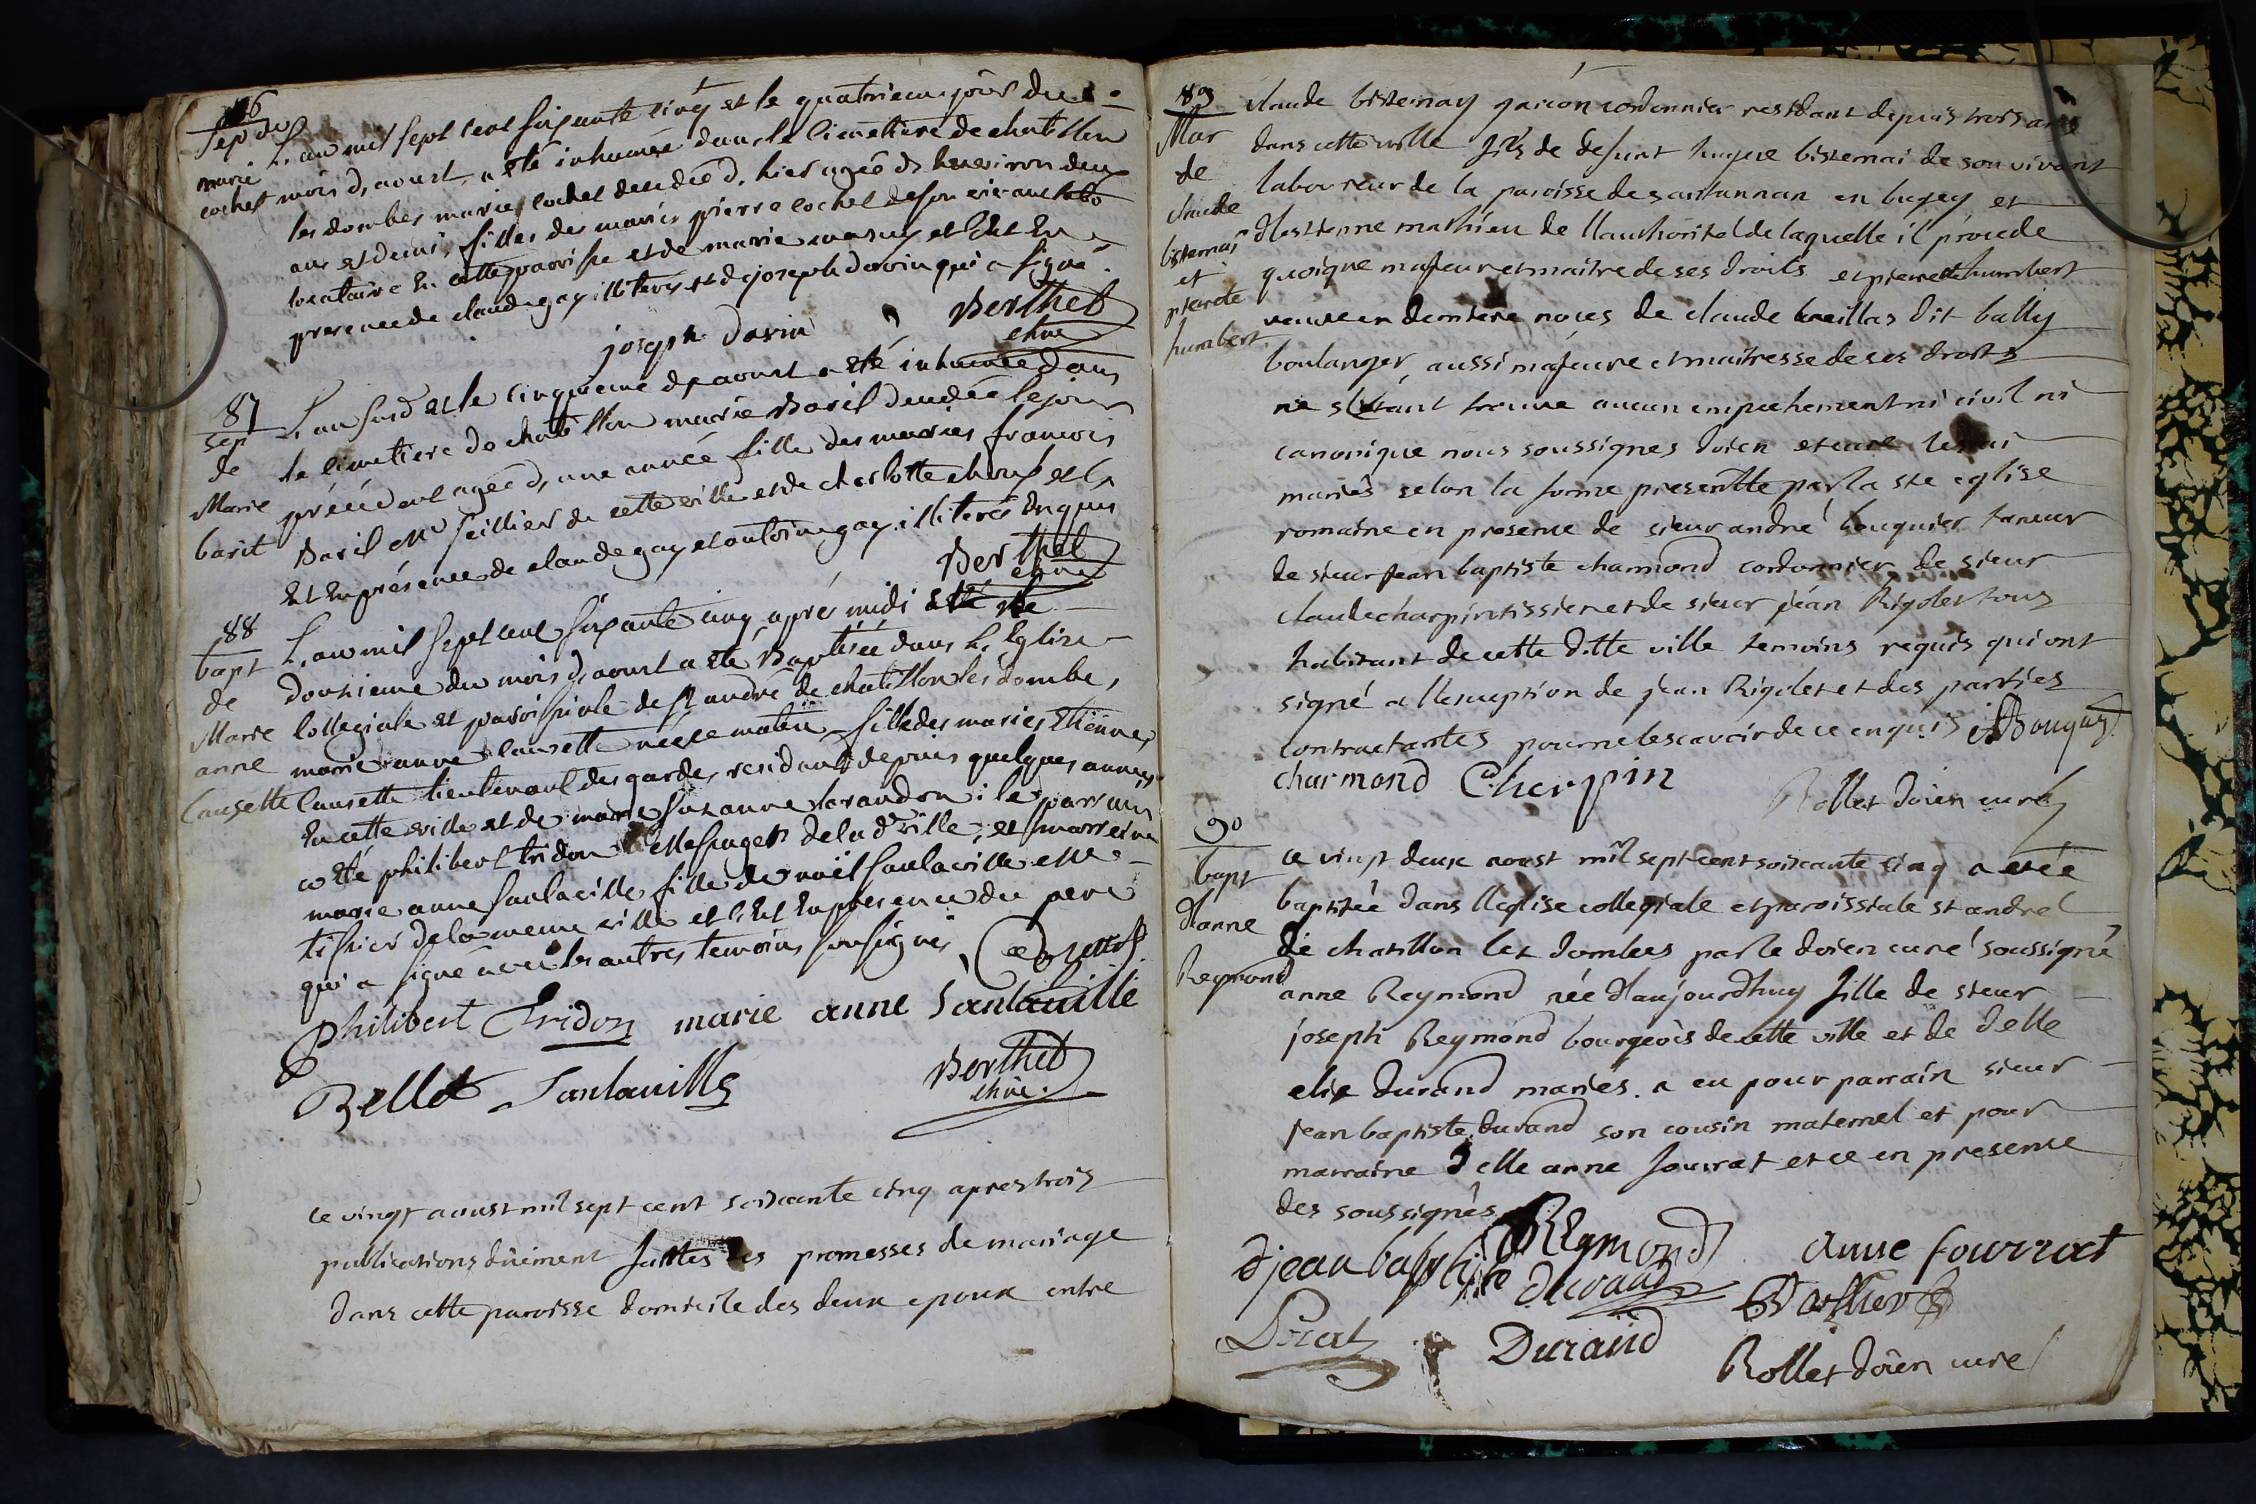 86
Sep de
marie
cochet
L'an mil sept cent soixante cinq et le quatrieme jour du
mois d'aoust a été inhumée dans le cimetiere de chatillon
les dombes marie cochet decedée d'hier agée d'environ deux
ans et demi fille des mariés pierre cochet de son vivant
locataire en cette paroisse et de marie et ce en
presence de claude gay illiteré et de joseph dorin qui a signé.
joseph dorin
Berthet
87
sep
de
Marie
baril
L'an susd et le cinquieme d'aoust a été inhumée dans
le cimetiere de chatillon marie Baril decedée le jour
précédent agée d'une année fille des mariés francois
Baril me sellier de cette ville et de charlotte et ce
et en présence de claude gay et antoine gay illiterés enquis
Berthet
88
bapt
de
Marie
anne
Causette
L'an mil sept cent soixante cinq après midi
douzieme du mois d'aoust a été Baptisée dans l'Eglise
collegiale et paroissiale de st andré de chatillon les dombe,
marie anne causette née ce matin fille des mariés Etienne
Causette lieutenant des gardes residant depuis quelques années
en cette ville et de marie suzanne ; le parrain
a été philibert tridon messager de la de ville, et marreine
marie anne saulaville fille de noël saulaville me
tissier de la meme ville et c'est en presence du pere
qui a signé avec les autres temoins soussignés
philibert Tridon marie anne Sanlaville
Bellet Sanlaville
Berthet
ce vingt aoust mil sept cent soixante cinq apres trois
publications düement faittes des promesses de mariage
dans cette paroisse domicile des deux epoux entre
89
Mar
de
claude
bisternai
et
pierrette
humbert
claude bisternay garcon cordonnier residant depuis trois ans
dans cette ville fils de defunt hugue bisternai de son vivant
laboureur de la paroisse de en bugey et
d'estienne mathieu de l'authorité de laquelle il procede
quoique majeur et maitre de ses droits et pierrette humbert
veuve en derniere noces de claude dit bally
boulanger, aussi majeure et maitresse de ses droits
ne s'etant trouve aucun empechement ni civil ni
canonique nous soussignes doien et curé les ai
mariés selon la forme presentte par la ste eglise
romaine en presence de sieur andré bouquier taneur
de sieur jean baptiste charmond cordonnier de sieur
claude charpin tissier et de sieur jean Rigolet tous
habitant de cette ditte ville temoins requis qui ont
signé a l'exception de jean Rigolet et des parties
contractantes pour ne le scavoir de ce enquis
charmond Cherpin
Rollet doien curé
90
bapt
d'anne
Reymond
ce vingt deux aoust mil sept cent soixante cinq a etée
baptisée dans l'eglise collegiale et paroissiale st andré
de chatillon lez dombes par le doien curé soussigné
anne Reymond née d'aujourdhuy fille de sieur
joseph Reymond bourgeois de cette ville et de delle
elie durand mariés. a eu pour parrain sieur
jean baptiste durand son cousin maternel et pour
marraine delle anne fourrat et ce en presence
des soussignés
REymond
jean baptiste durand
anne fourrat
Durand
Rollet doien curé